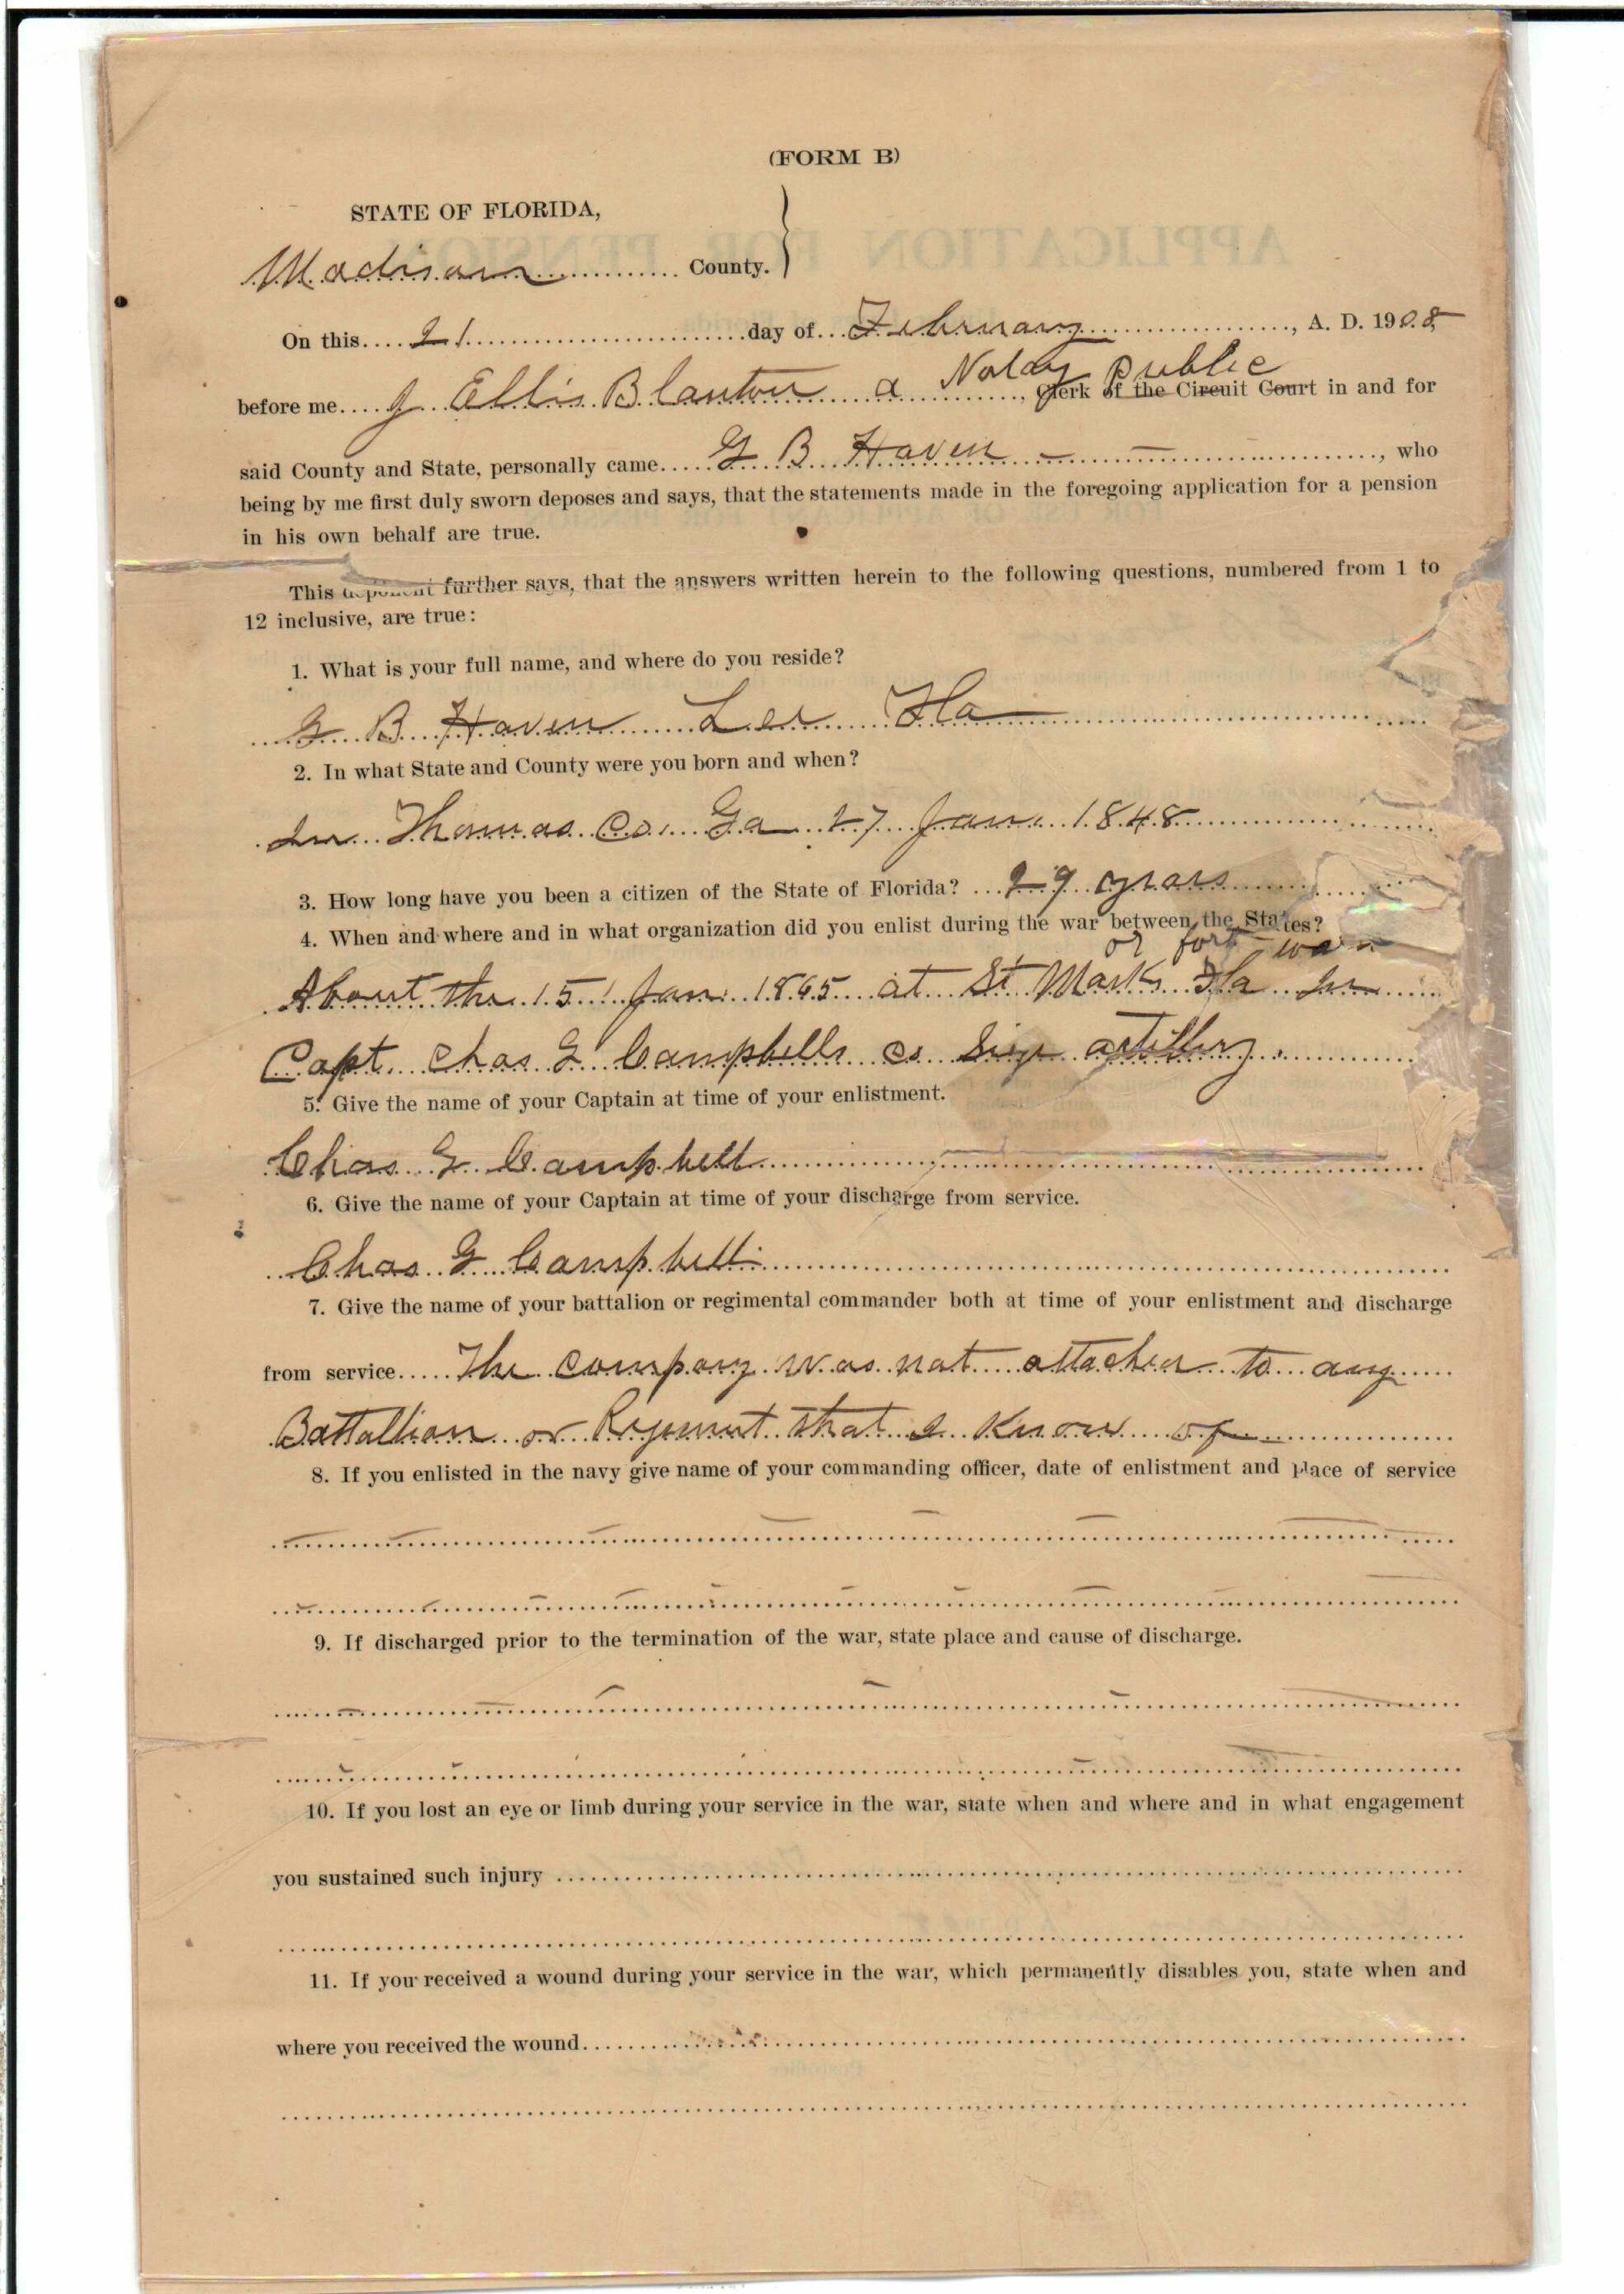 (FORM B)
STATE OF FLORIDA,
Madison County.
On this 21 day of February, A. D. 1908
Notay Public
before me J Ellis Blanton a, Clerk of the Circuit Court in and for
said County and State, personally came G B Haven, who
being by me first duly sworn deposes and says, that the statements made in the foregoing application for a pension
in his own behalf are true.
This deponent further says, that the answers written herein to the following questions, numbered from 1 to
12 inclusive, are true:
1. What is your full name, and where do you reside?
G B Haven Lee Fla
2. In what State and County were you born and when?
In Thomas Co. Ga 27 Jan. 1848
3. How long have you been a citizen of the State of Florida? 29 years
4. When and where and in what organization did you enlist during the war between the States?
or fort
About the 15 Jan. 1865 at St Marks Fla In
Capt. Chas G Campbells Co Sige artillery
5. Give the name of your Captain at time of your enlistment.
Chas G Campbell
6. Give the name of your Captain at time of your discharge from service.
Chas G Campbell
7. Give the name of your battalion or regimental commander both at time of your enlistment and discharge
from service The company was not attached to any
Battallion or Regiment that I know of
8. If you enlisted in the navy give name of your commanding officer, date of enlistment and place of service
9. If discharged prior to the termination of the war, state place and cause of discharge.
10. If you lost an eye or limb during your service in the war, state when and where and in what engagement
you sustained such injury
11. If you received a wound during your service in the war, which permanently disables you, state when and
where you received the wound